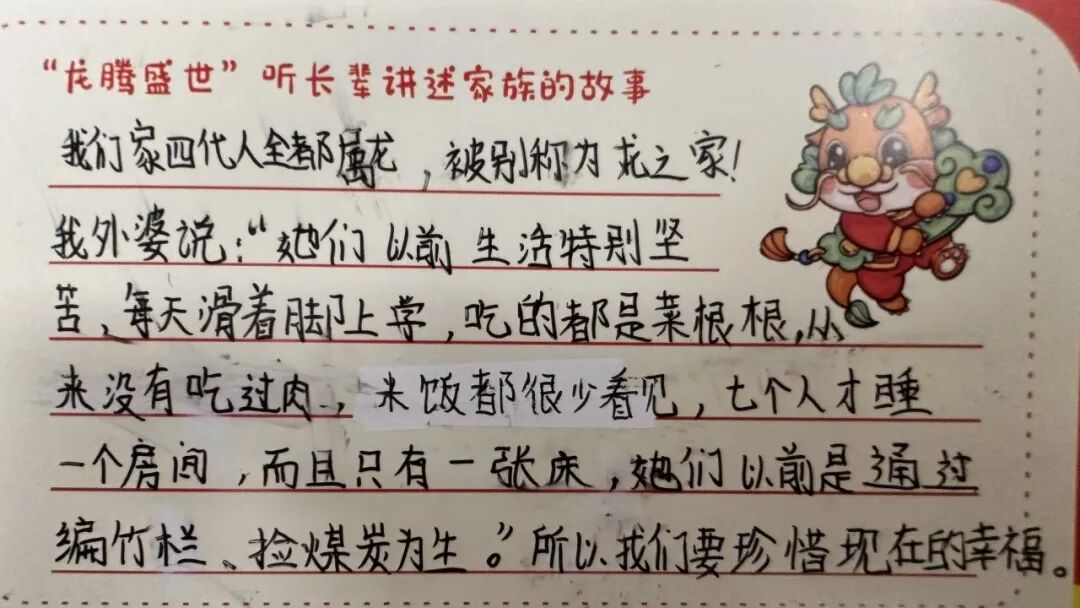 “龙腾盛世”听长辈讲述家族的故事
我们家四代人全都属龙，被别称为龙之家！
我外婆说：“她们以前生活特别坚
苦、每天滑着脚上学，吃的都是菜根根，从
来没有吃过肉，米饭都很少看见，七个人才睡
一个房间，而且只有一张床，她们以前是通过
编竹栏、捡煤炭为生。”所以我们要珍惜现在的幸福。